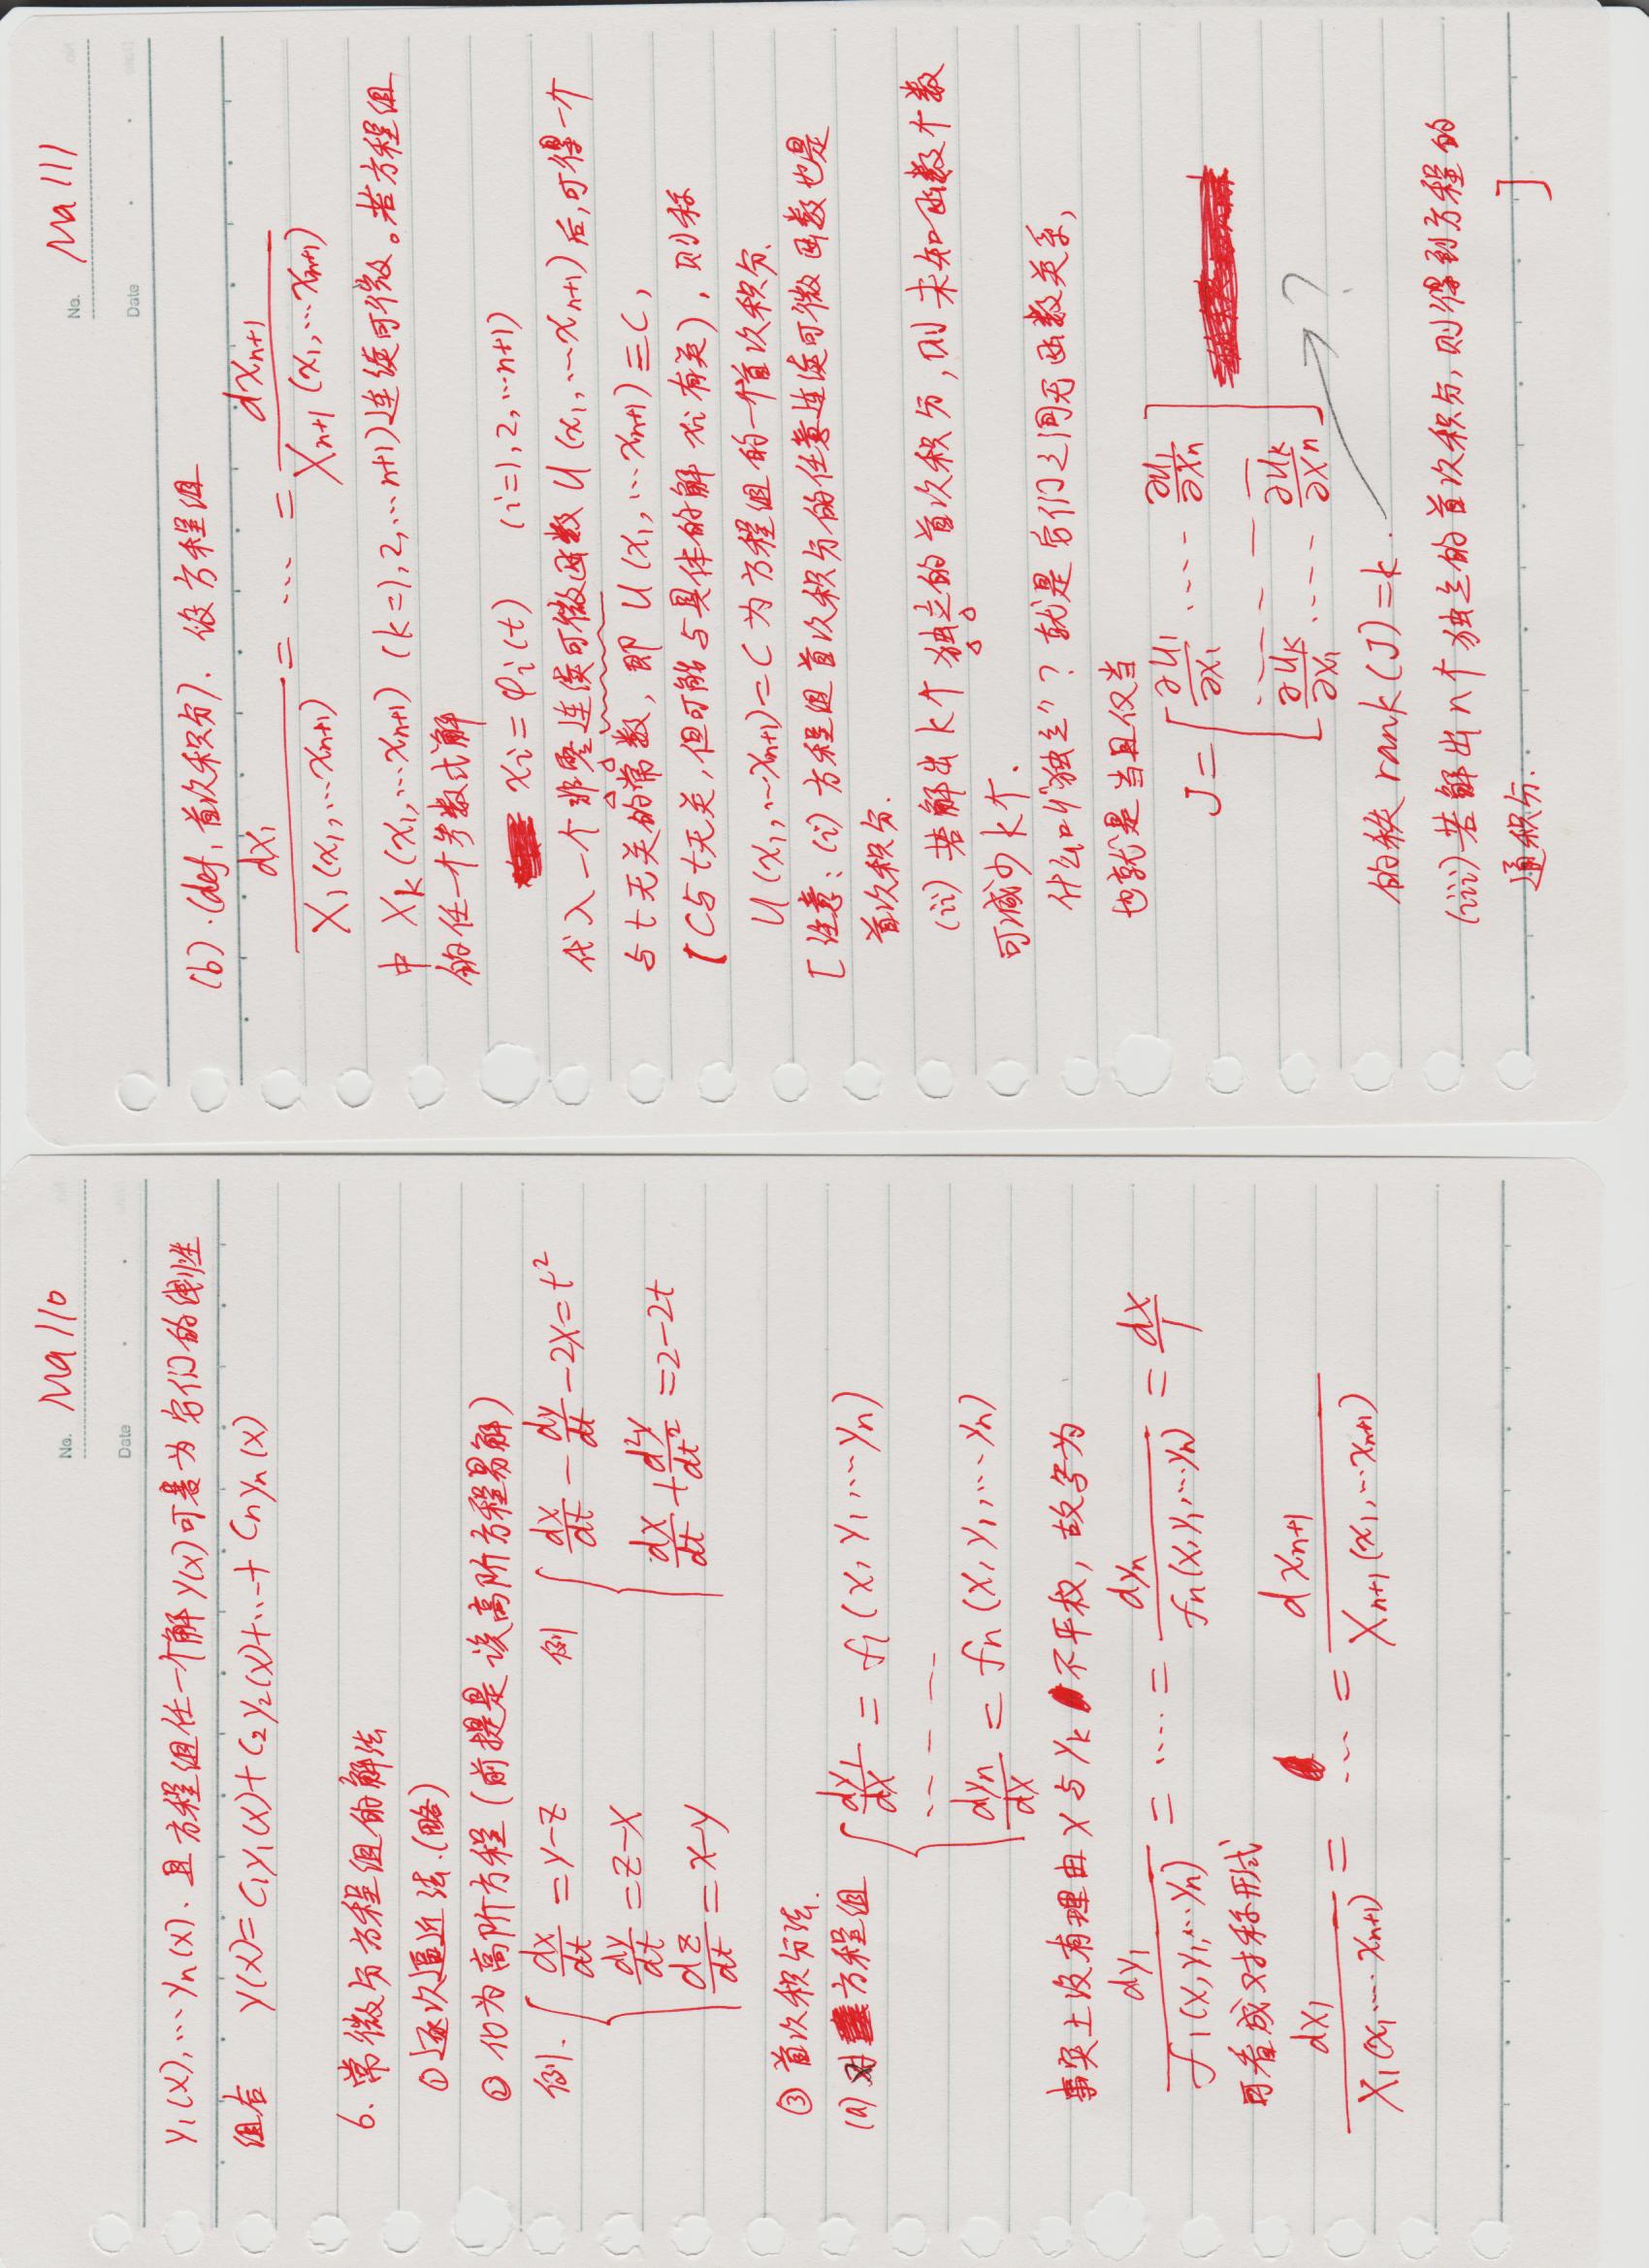 No. Ma 110
Date
y₁(x),…yₙ(x). 且方程组任一个解y(x)可表为它们的线性
组合 y(x)=C₁y₁(x)+C₂y₂(x)+…+Cₙyₙ(x)
6. 常微分方程组的解法
①逐次逼近法.(略)
② 化为高阶方程(前提是该高阶方程易解)
例. { dx/dt = y-z 例 { dx/dt - dy/dt - 2x = t²
dy/dt = z-x
dz/dt = x-y dx/dt + d²y/dt² = 2-2t
③ 首次积分法.
(a) 对方程组 { dy₁/dx = f₁(x, y₁,…yₙ)
……
dyₙ/dx = fₙ(x, y₁,…yₙ)
事实上没有理由x与yₖ不平权, 故写为
dy₁/f₁(x,y₁,…yₙ) = …… = dyₙ/fₙ(x,y₁,…yₙ) = dx/1
可看成对称形式
dx₁/X₁(x₁,…xₙ₊₁) = … = dxₙ₊₁/Xₙ₊₁(x₁,…xₙ₊₁)
No. Ma 111
Date
(b).(def, 首次积分). 设方程组
dx₁/X₁(x₁,…xₙ₊₁) = … = dxₙ₊₁/Xₙ₊₁(x₁,…xₙ₊₁)
中 Xₖ(x₁,…xₙ₊₁) (k=1,2,…n+1)连续可微。若方程组
的任一个参数式解
xᵢ=φᵢ(t) (i=1,2,…n+1)
代入一个非零连续可微函数 U(x₁,…xₙ₊₁)后,可得一个
与t无关的常数, 即 U(x₁,…xₙ₊₁)≡C,
(C与t无关,但可能与具体的解xᵢ有关), 则称
U(x₁,…xₙ₊₁)=C 为方程组的一个首次积分.
[注意: (i) 方程组首次积分的任意连续可微函数也是
首次积分.
(ii) 若解出k个独立的首次积分, 则未知函数个数
可减少k个.
什么叫"独立"? 就是它们之间无函数关系,
也就是当且仅当
J = [ ∂U₁/∂x₁ …… ∂U₁/∂xₙ
……
∂Uₖ/∂x₁ …… ∂Uₖ/∂xₙ ]
?
的秩 rank(J)=k.
(iii)若解出n个独立的首次积分, 则得到方程的
通积分. ]